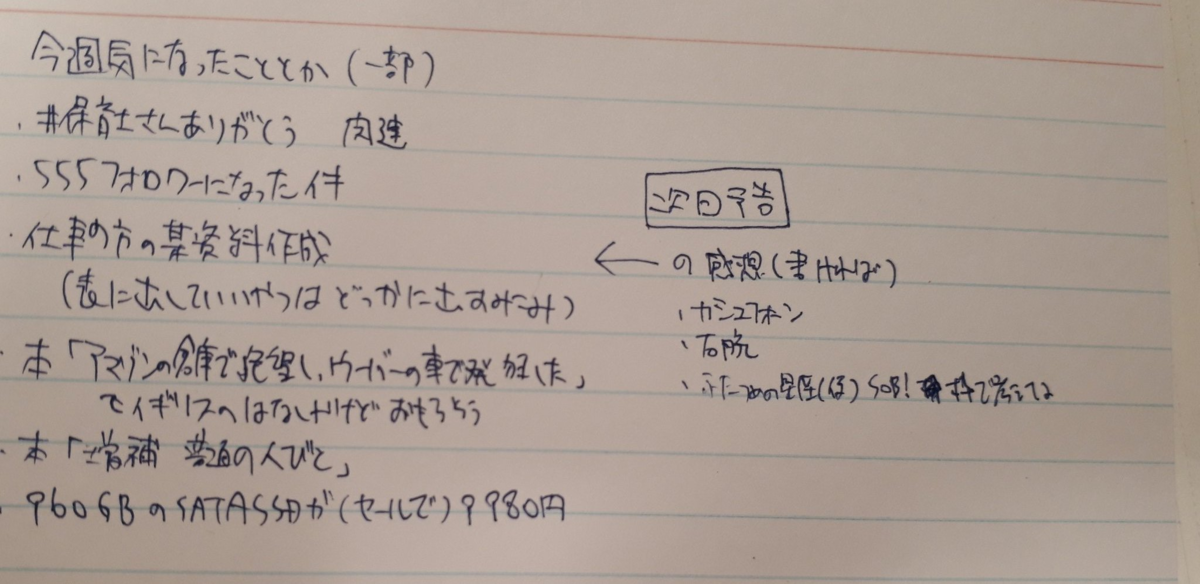 今週気になったこととか(一部)
・#保育士さんありがとう 関連
・555フォロワーになった件
・仕事の方の某資料作成
(表に出していいやつはどっかに出すみこみ)
・本「アマゾンの倉庫で絶望し、ウーバーの車で発狂した」
でイギリスのはなしだけどおもろそう
・本「増補 普通の人びと」
・960GBのSATASSDが(セールで)9980円
次回予告
← の感想(書ければ)
・カシュフォーン
・右腕
・ふたつめの星座(ほし) SOB! 枠で考えてな